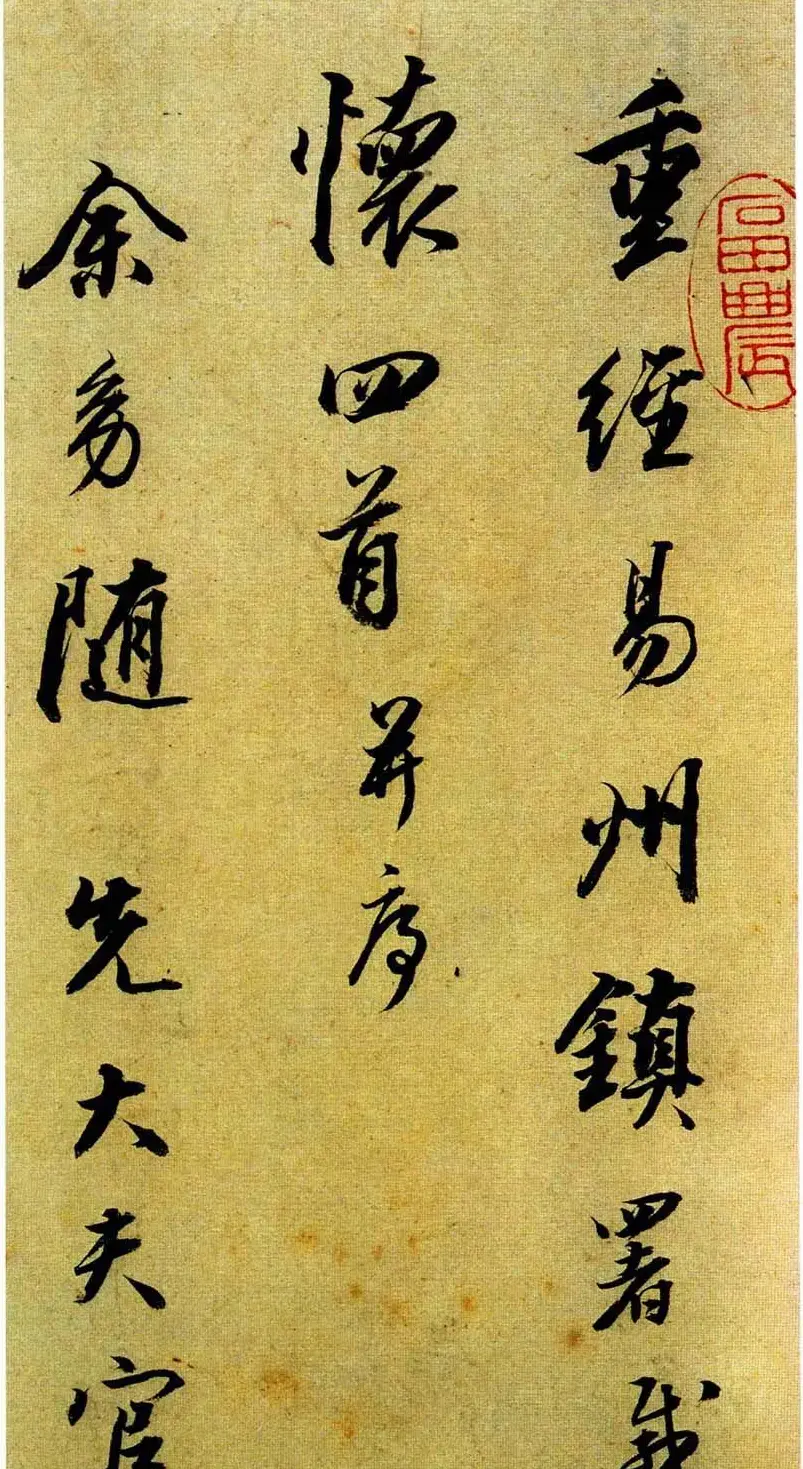 重經易州鎮署感
懷四首并序
余幼随先大夫宦